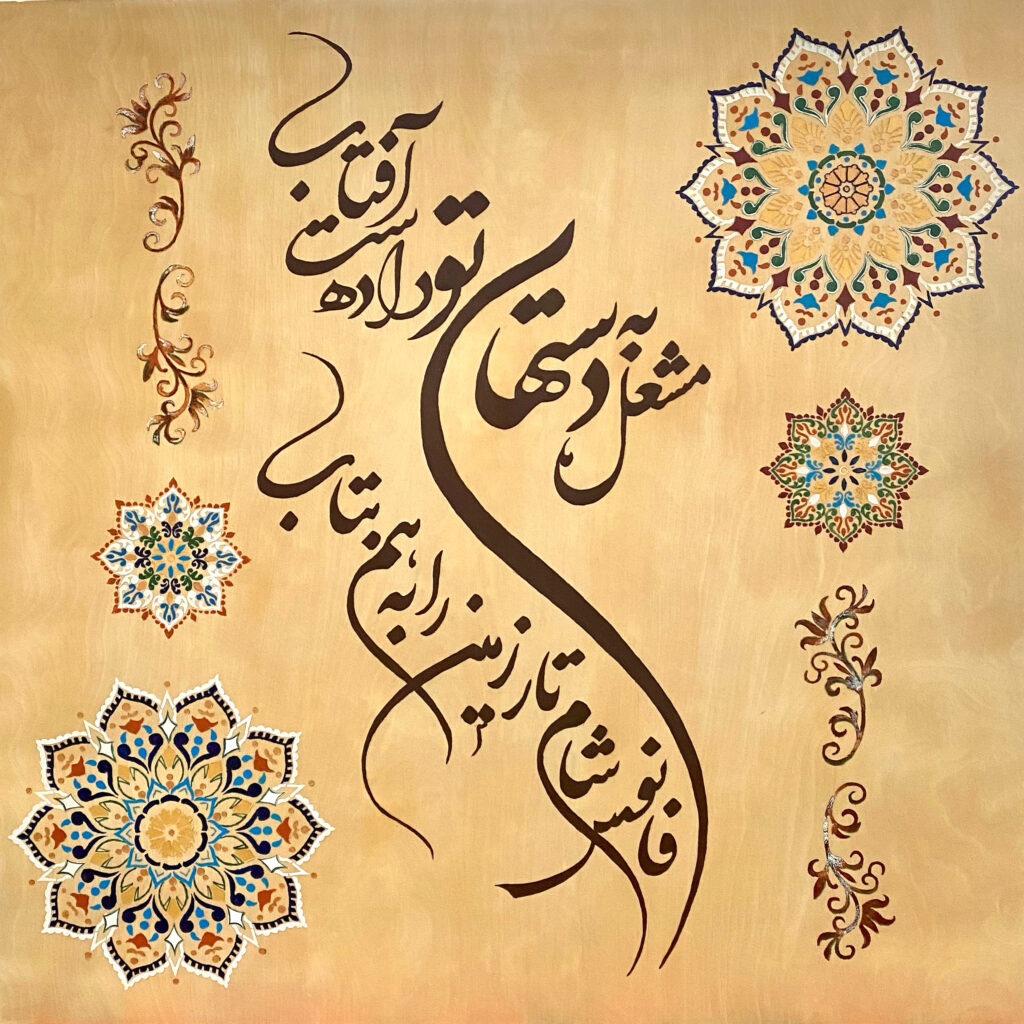 مشعل به دستهای تو داده ست آفتاب
فانوس شام تار زمین را به هم بتاب